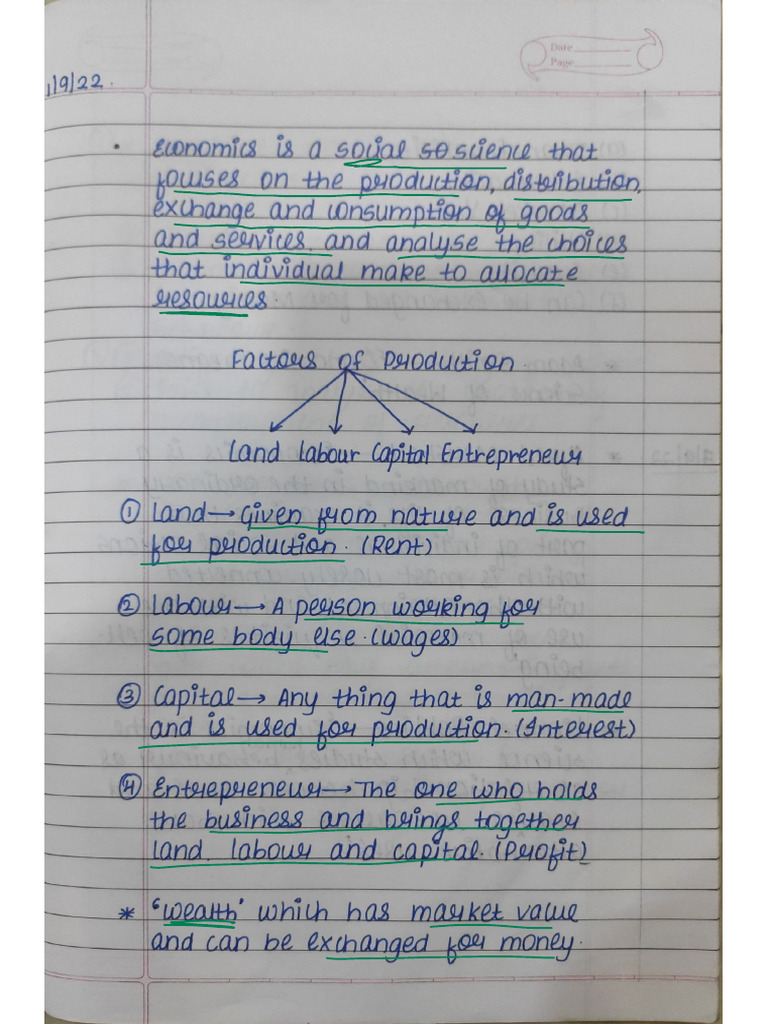 Date
Page
1/9/22.
• Economics is a social so science that
focuses on the production, distribution,
exchange and consumption of goods
and services, and analyse the choices
that individual make to allocate
resources.
Factors of Production
Land Labour Capital Entrepreneur
① Land → Given from nature and is used
for production. (Rent)
② Labour → A person working for
some body else. (wages)
③ Capital → Any thing that is man-made
and is used for production. (Interest)
④ Entrepreneur → The one who holds
the business and brings together
land, labour and capital. (Profit)
* 'wealth' which has market value
and can be exchanged for money.